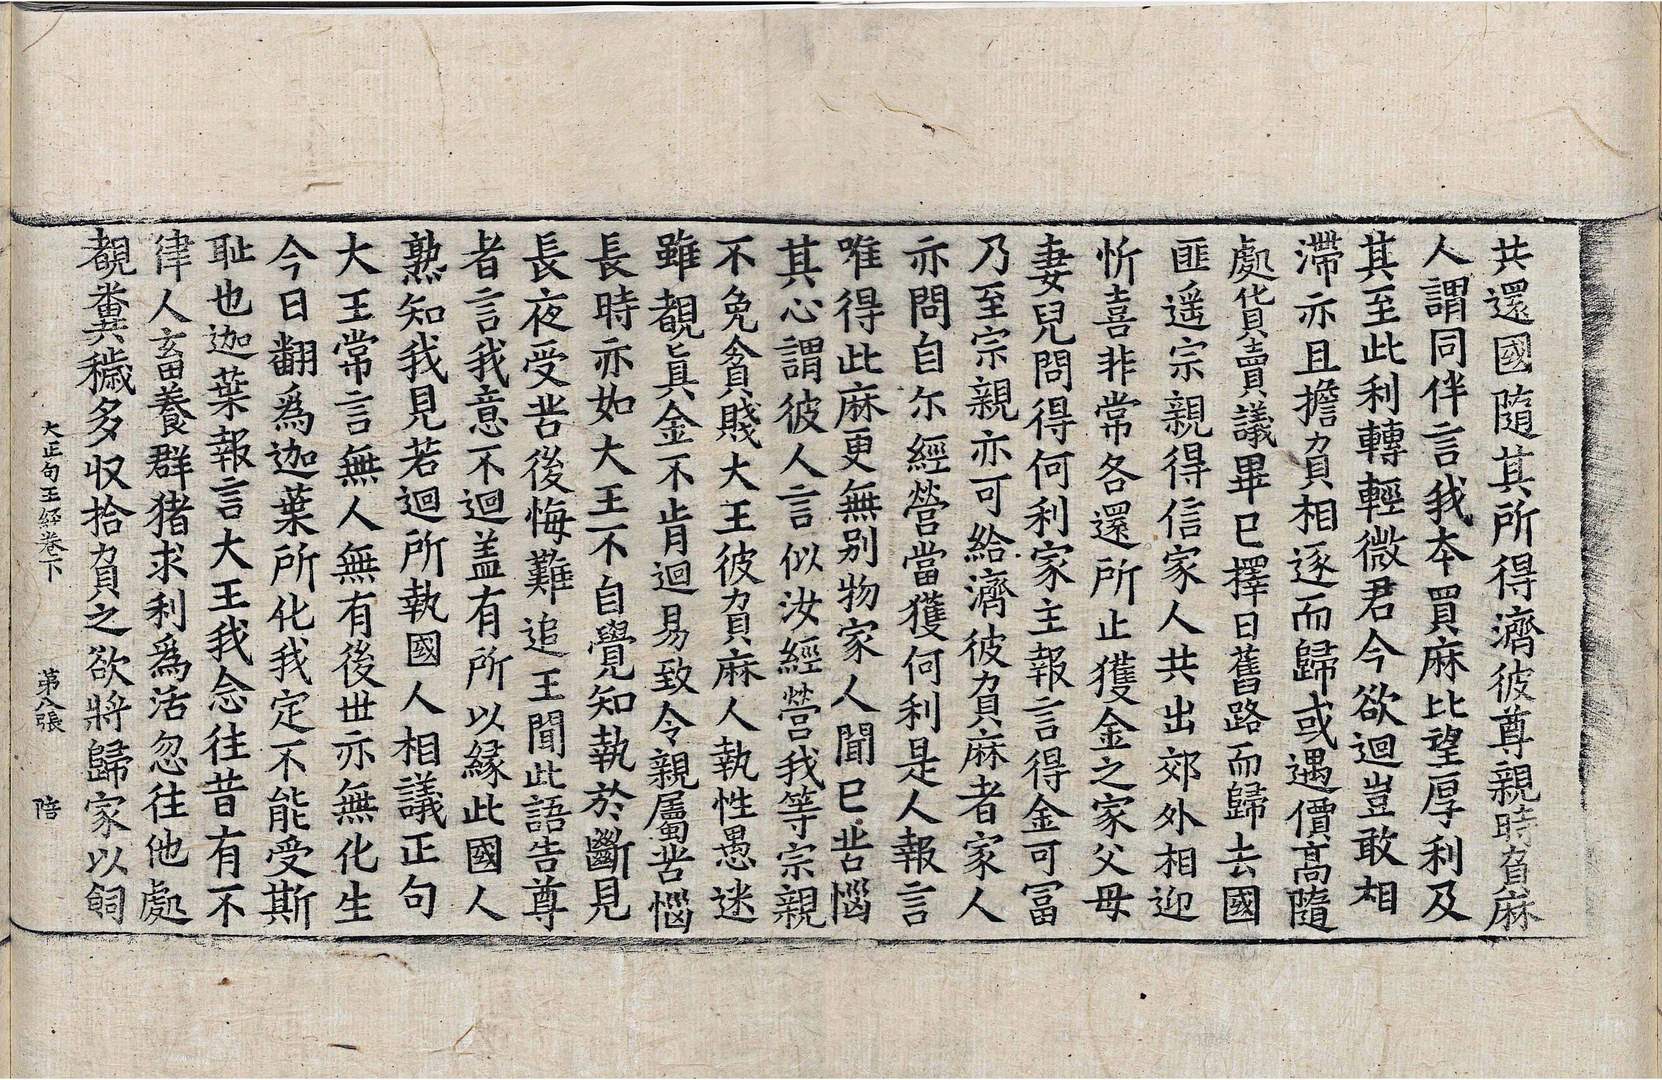 共還國隨其所得濟彼尊親時負麻
人謂同伴言我本買麻比望厚利及
其至此利轉輕微君今欲迴豈敢相
滯亦且擔負相逐而歸或遇價高隨
處貨賣議畢已擇日舊路而歸去國
匪遥宗親得信家人共出郊外相迎
忻喜非常各還所止獲金之家父母
妻兒問得何利家主報言得金可冨
乃至宗親亦可給濟彼負麻者家人
亦問自尒經營當獲何利是人報言
唯得此麻更無别物家人聞已苦惱
其心謂彼人言似汝經營我等宗親
不免貧賤大王彼負麻人執性愚迷
雖覩眞金不肯迴易致令親屬苦惱
長時亦如大王不自覺知執於斷見
長夜受苦後悔難追王聞此語告尊
者言我意不迴盖有所以縁此國人
熟知我見若迴所執國人相議正句
大王常言無人無有後世亦無化生
今日翻爲迦葉所化我定不能受斯
耻也迦葉報言大王我念往昔有不
律人畜養群猪求利爲活忽往他處
覩糞穢多収拾負之欲將歸家以飼
大正句王經卷下 第八張 陪